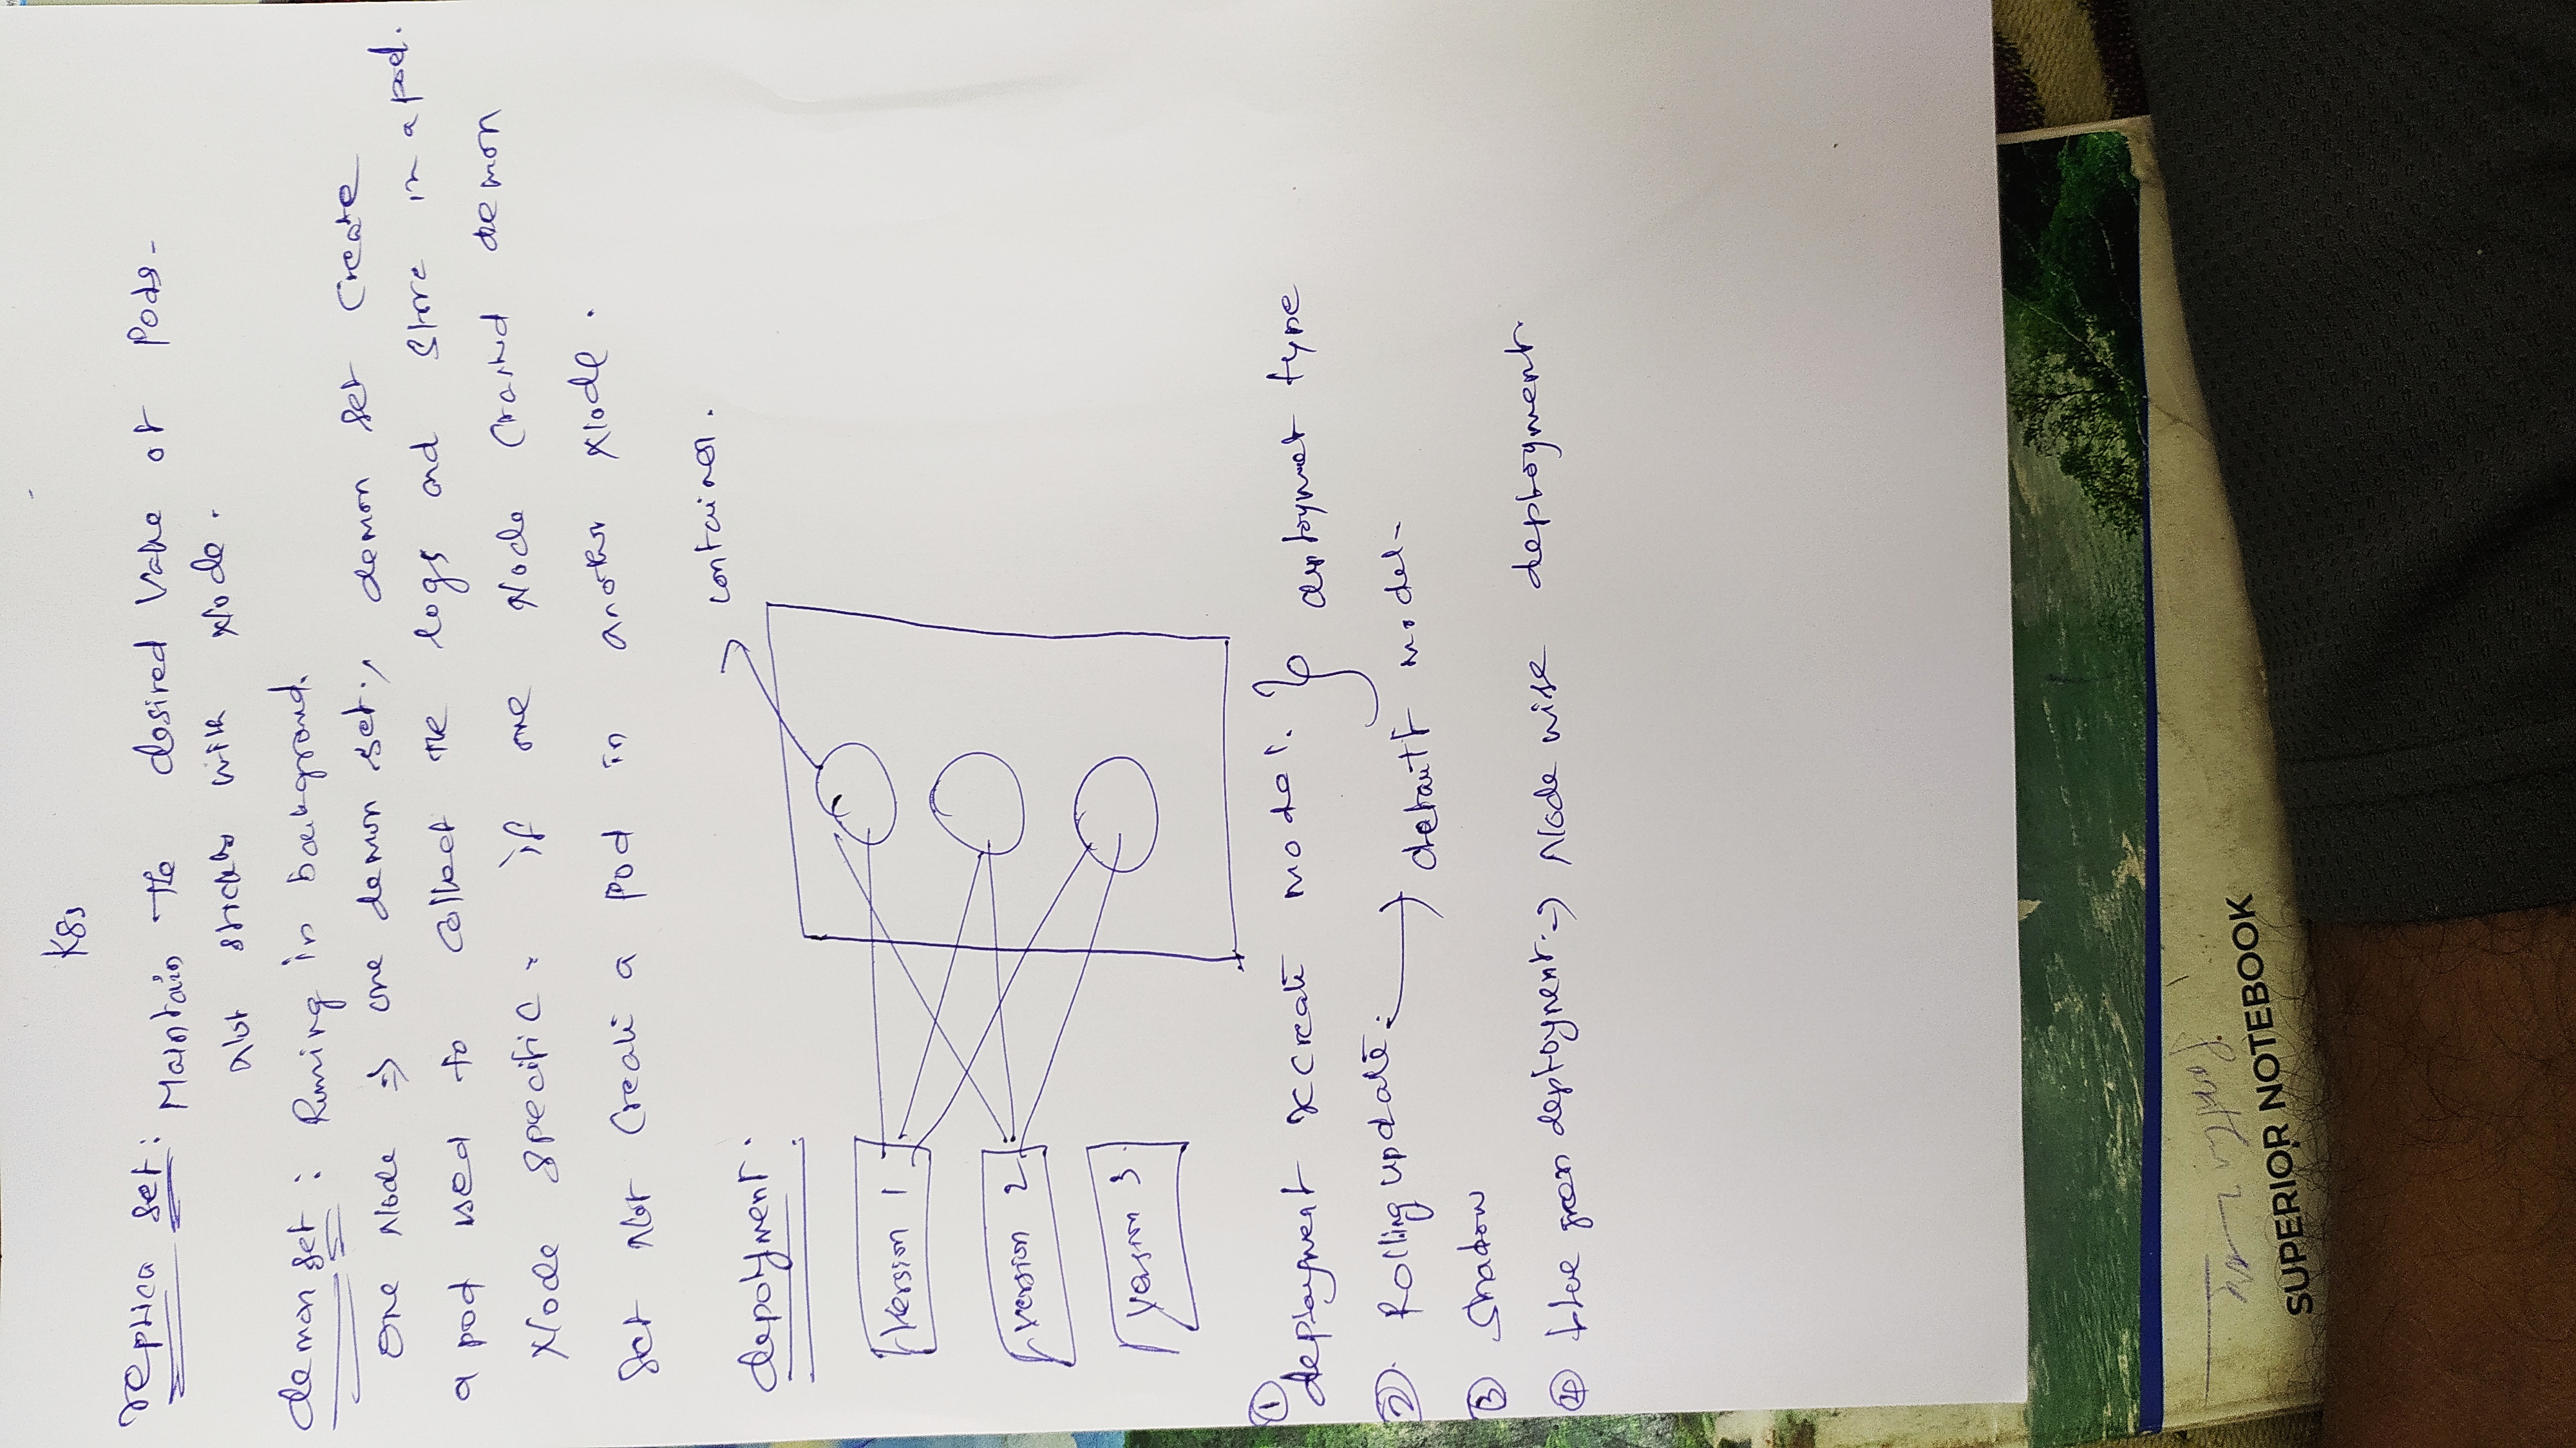 K8s
replica set: Maintain the desired value of Pods-
Not stricktly with Node.
demon set: Running in background.
one Node => one demon set, demon set create
a pod used to collect the logs and store in a pod.
Node specific. if one Node crashed demon
set Not create a pod in another Node.
depolyment:
container.
Version 1
version 2
Version 3
① deployment recreate model. deployment type
② Rolling update: → default model-
③ Shadow
④ blue green deployment:-> Node wise deployment
SUPERIOR NOTEBOOK